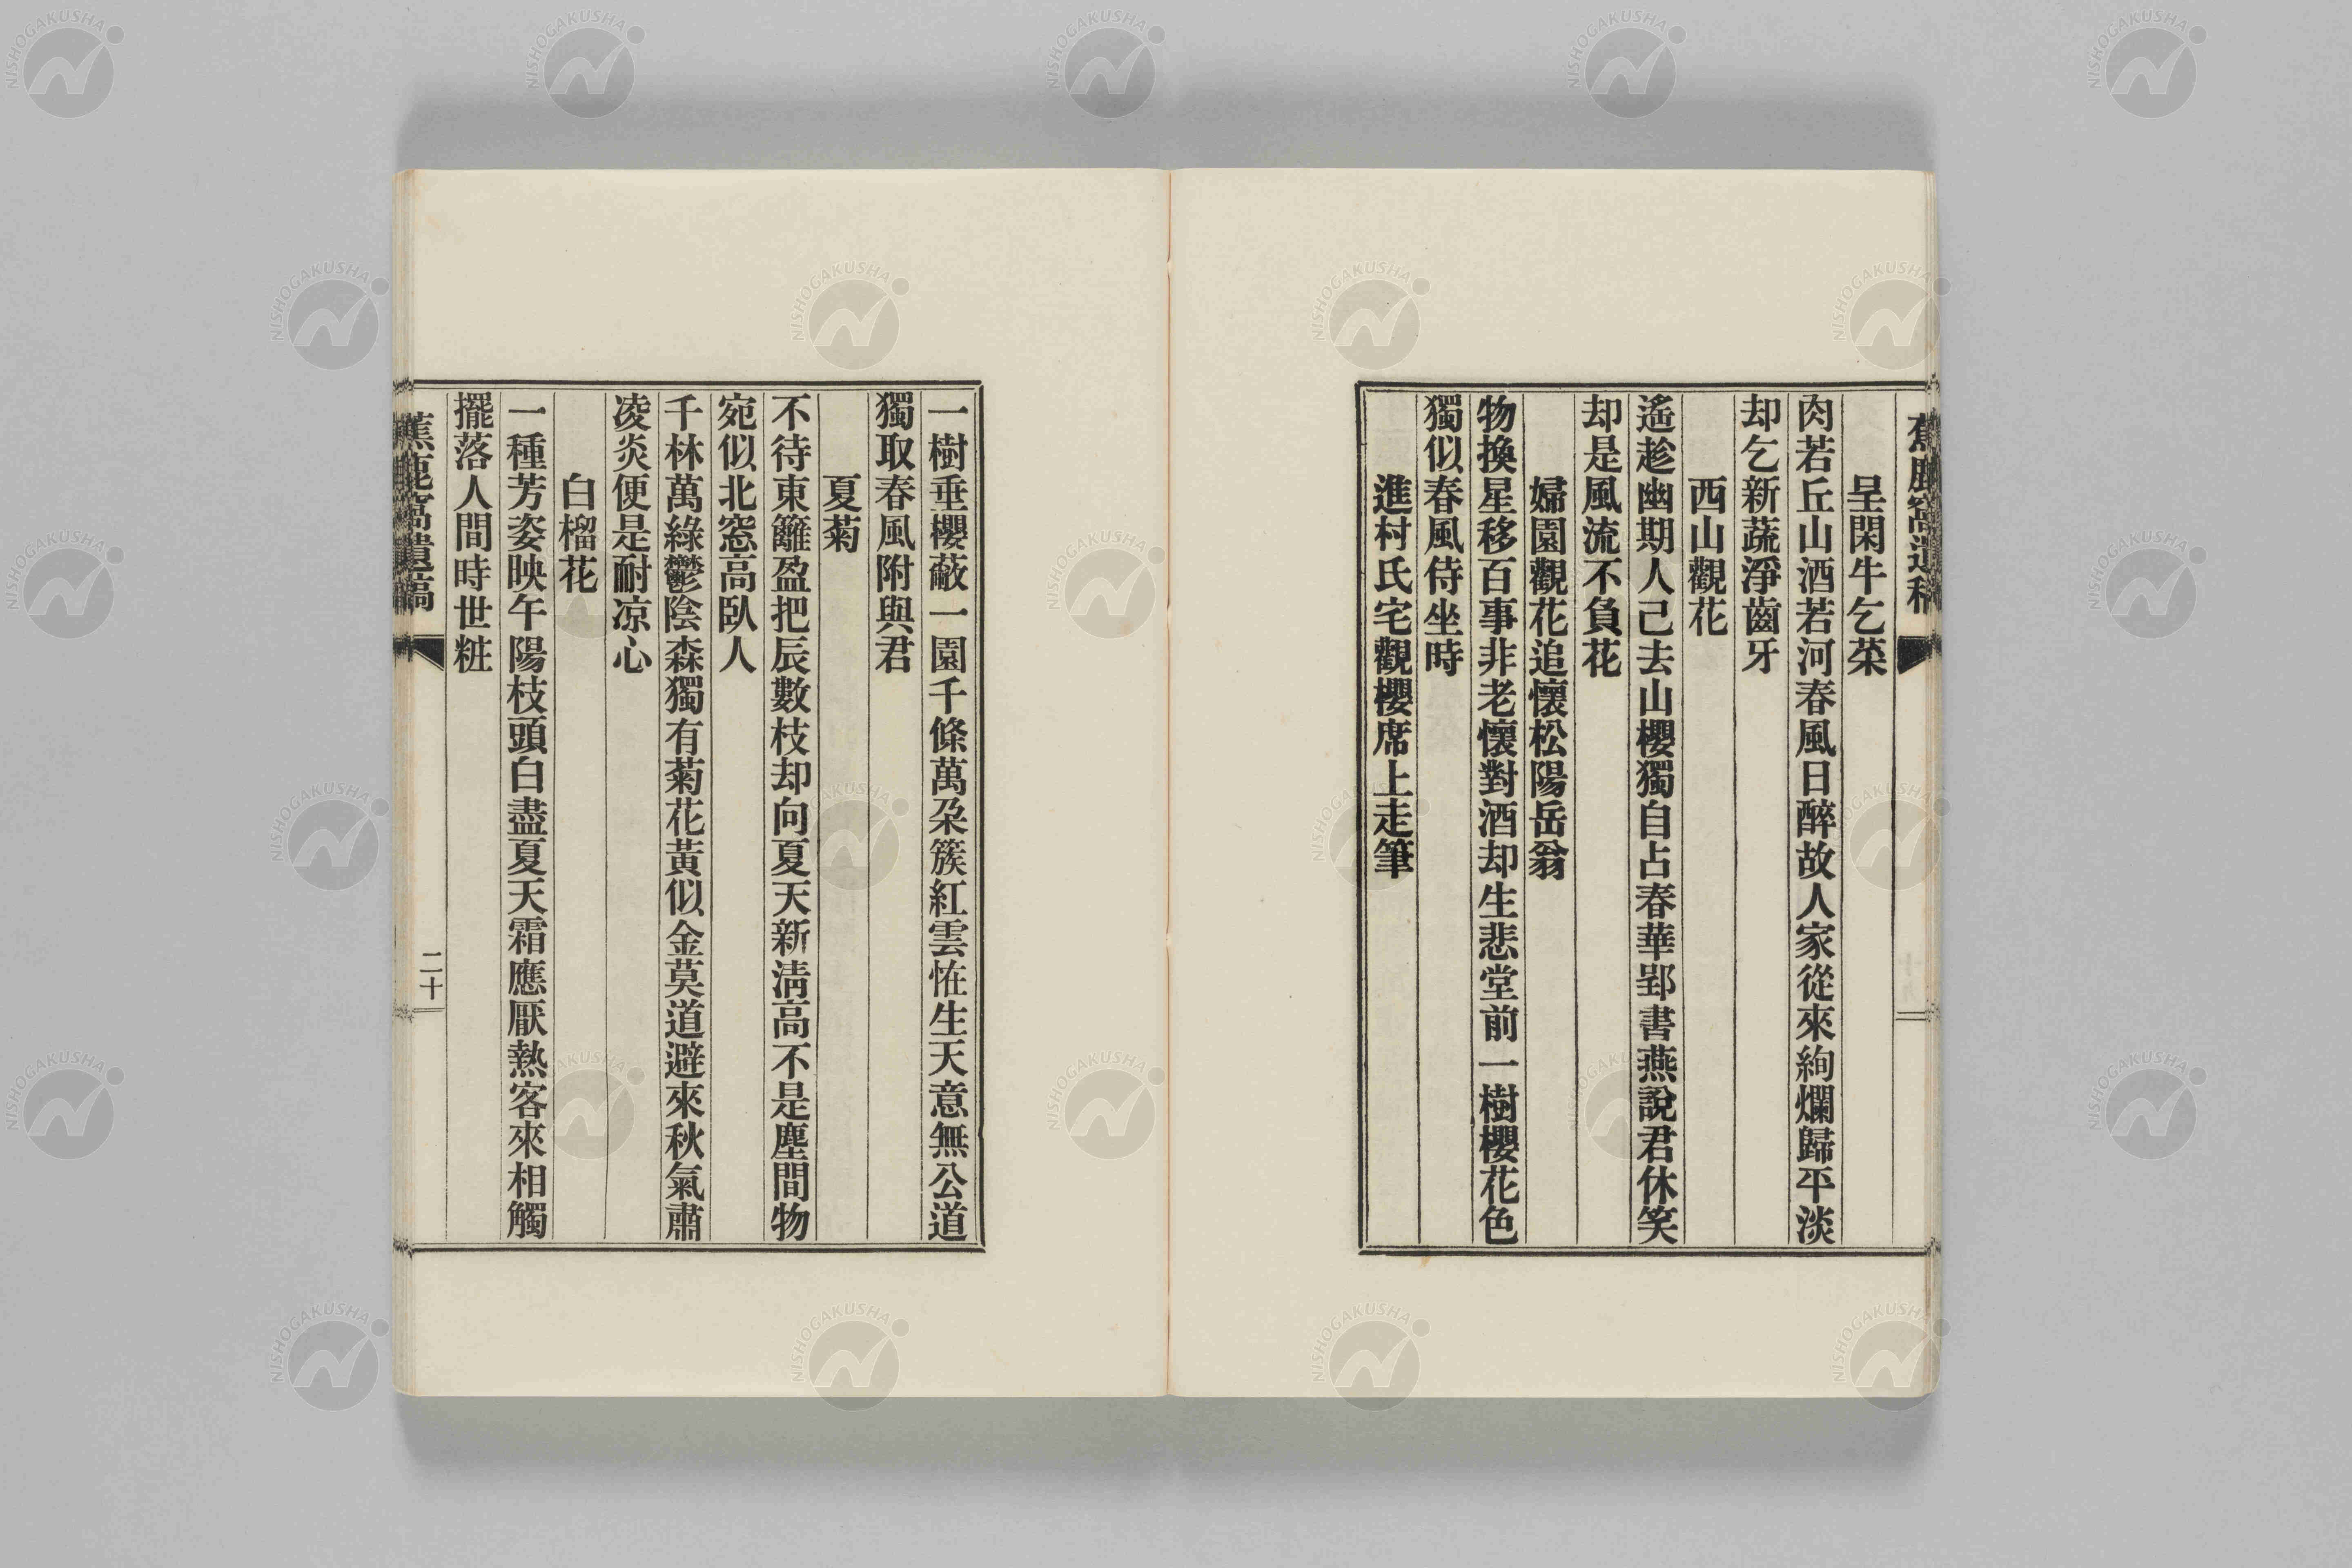 蕉鹿窩遺稿
呈閑牛乞菜
肉若丘山酒若河春風日醉故人家從來絢爛歸平淡
却乞新蔬淨齒牙
西山觀花
遙趁幽期人己去山櫻獨自占春華郢書燕說君休笑
却是風流不負花
婦園觀花追懷松陽岳翁
物換星移百事非老懷對酒却生悲堂前一樹櫻花色
獨似春風侍坐時
進村氏宅觀櫻席上走筆
一樹垂櫻蔽一園千條萬朶簇紅雲恠生天意無公道
獨取春風附與君
夏菊
不待東籬盈把辰數枝却向夏天新淸高不是塵間物
宛似北窓高臥人
千林萬綠鬱陰森獨有菊花黃似金莫道避來秋氣肅
凌炎便是耐凉心
白榴花
一種芳姿映午陽枝頭白盡夏天霜應厭熱客來相觸
擺落人間時世粧
蕉鹿窩遺稿
二十
NISHOGAKUSHA